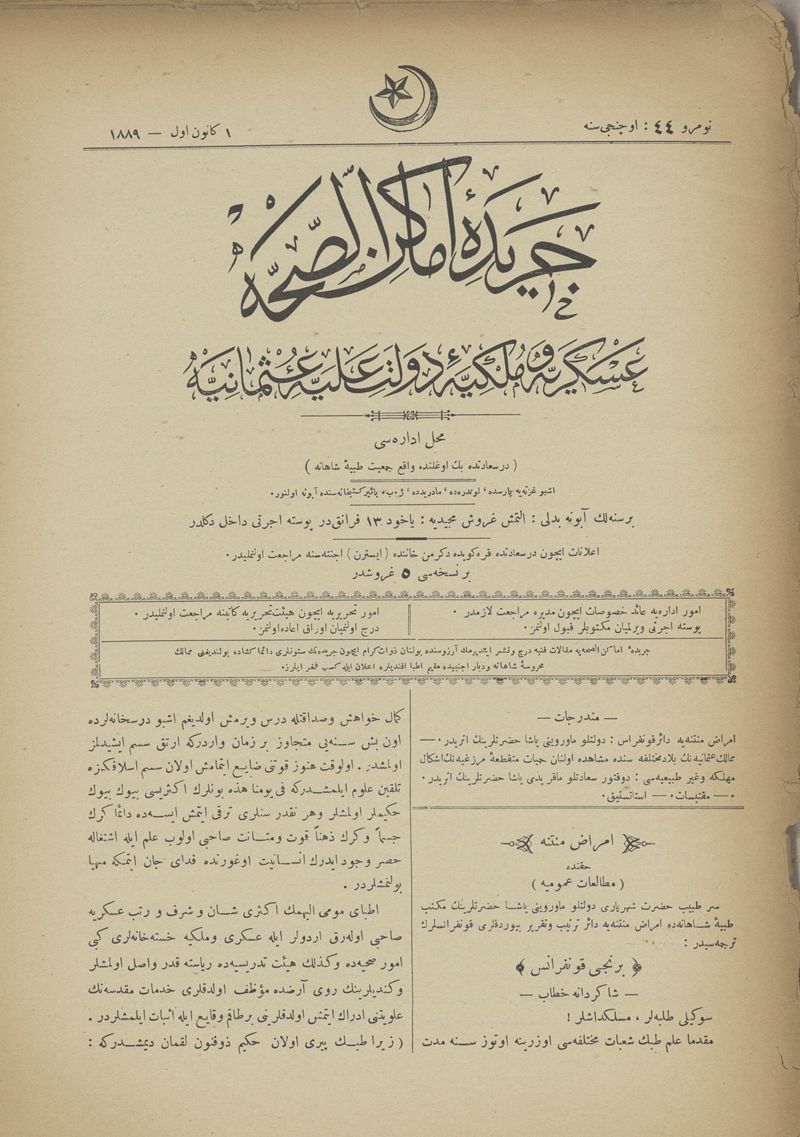 نومرو ٤٤ : اوچنجی سنه
١ كانون اول — ١٨٨٩
جريدهٔ اماكن الصحه
عسكريه و ملكيهٔ دولت عليهٔ عثمانيه
محل اداره‌سی
( درسعادتده بك اوغلنده واقع جمعيت طبيهٔ شاهانه )
اشبو غزته‌يه پارسده ، لوندره‌ده ، مادريدده ، ژ. ب. كتبخانه‌سنده آبونه اولنور .
برسنه‌لك آبونه بدلی : التمش غروش مجيديه : ياخود ١٣ فرانق‌در پوسته اجرتی داخل دكلدر
اعلانات ايچون درسعادتده قره‌كويده دكرمن خاننده ( ايسترن ) اجنته‌سنه مراجعت اولنمليدر .
بر نسخه‌سی ٥ غروشدر
امور اداره‌يه عائد خصوصات ايچون مديره مراجعت لازمدر .
پوسته اجرتی ويرلميان مكتوبلر قبول اولنمز .
امور تحريريه ايچون هيئت تحريريه كاتبنه مراجعت اولنمليدر .
درج اولنميان اوراق اعاده اولنمز .
جريدهٔ اماكن الصحه‌يه مقالات فنيه درج و نشر ايتديرمك آرزوسنده بولنان ذوات كرام ايچون جريده‌نك ستونلری دائما كشاده بولنديغنی ممالك
محروسهٔ شاهانه و ديار اجنبيده مقيم اطبا افنديلره اعلان ايله كسب فخر ايلرز .
— مندرجات —
امراض منتنه‌يه دائر قونفرانس : دولتلو ماوروينی پاشا حضرتلرينك اثريدر . —
ممالك عثمانيه‌نك بلاد مختلفه سنده مشاهده اولنان حميات متقطعهٔ مرزغيه‌نك اشكال
مهلكه وغير طبيعيه‌سی : دوقتور سعادتلو مافريدی پاشا حضرتلرينك اثريدر .
— مقتبسات . — استاتستيق .
امراض منتنه
حقنده
( مطالعات عموميه )
سر طبيب حضرت شهرياری دولتلو ماوروينی پاشا حضرتلرينك مكتب
طبيهٔ شاهانه‌ده امراض منتنه‌يه دائر ترتيب وتقرير بيوردقلری قونفرانسلرك
ترجمه‌سيدر :
﴿ برنجی قونفرانس ﴾
— شاكردانه خطاب —
سوكيلی طلبه‌لر ، مسلكداشلر !
مقدما علم طبك شعبات مختلفه‌سی اوزرينه اوتوز سنه مدت
كمال خواهش وصداقتله درس ويرمش اولديغم اشبو درسخانه‌لرده
اون بش سنه‌يی متجاوز بر زمان واردركه ارتق سسم ايشيدلمز
اولمشدر . اولوقت هنوز قوتنی ضايع ايتمامش اولان سسم اسلافكزه
تلقين علوم ايلمشدركه فی يومنا هذه بونلرك اكثريسی بيوك بيوك
حكيملر اولمشلر وهر نقدر سنلری ترقی ايتمش ايسه‌ده دائما كرك
جسماً وكرك ذهناً قوت ومتانت صاحبی اولوب علم ايله اشتغاله
حصر وجود ايدرك انسانيت اوغورنده فدای جان ايتمكه مهيا
بولنمشلردر .
اطبای مومی اليهمك اكثری شان و شرف و رتب عسكريه
صاحبی اوله‌رق اردولر ايله عسكری وملكيه خسته‌خانه‌لری كبی
امور صحيه‌ده وكذلك هيئت تدريسيه‌ده رياسته قدر واصل اولمشلر
وكنديلرينك روی آرضده مؤظف اولدقلری خدمات مقدسه‌نك
علويتنی ادراك ايتمش اولدقلرينی برطاقم وقايع ايله اثبات ايلمشلردر .
( زيرا طبك پيری اولان حكيم ذوفنون لقمان ديمشدركه :